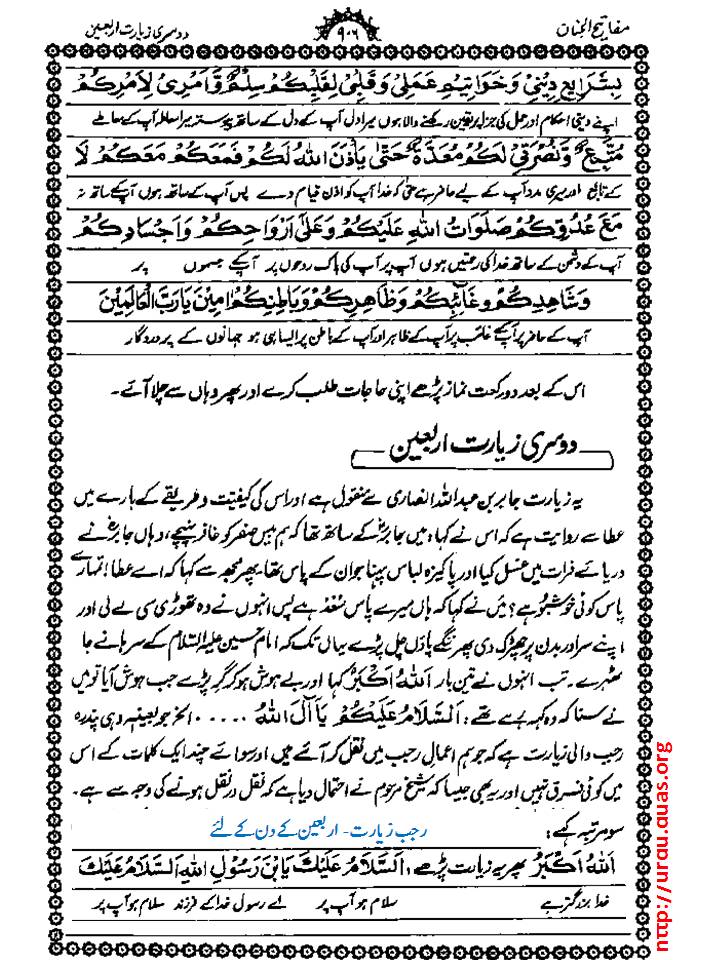 مفاتیح الجنان
۹۰۶
دوسری زیارت اربعین
بِشَرَايِعِ دِيْنِيْ وَخَوَاتِيْمِ عَمَلِيْ وَقَلْبِيْ لِقَلْبِكُمْ سِلْمٌ وَّاَمْرِيْ لِاَمْرِكُمْ
اپنے دینی احکام اور عمل کی جزا پر یقین رکھنے والا ہوں میرا دل آپ کے دل کے ساتھ پیوستہ میرا معاملہ آپ کے معاملے
مُتَّبِعٌ وَّنُصْرَتِيْ لَكُمْ مُعَدَّةٌ حَتّٰى يَاْذَنَ اللّٰهُ لَكُمْ فَمَعَكُمْ مَعَكُمْ لَا
کے تابع اور میری مدد آپ کے لیے حاضر ہے حتیٰ کہ خدا آپ کو اذن قیام دے پس آپ کے ساتھ ہوں آپ کے ساتھ نہ
مَعَ عَدُوِّكُمْ صَلَوَاتُ اللّٰهِ عَلَيْكُمْ وَعَلٰى اَرْوَاحِكُمْ وَاَجْسَادِكُمْ
آپ کے دشمن کے ساتھ خدا کی رحمتیں ہوں آپ پر آپ کی پاک روحوں پر آپ کے جسموں پر
وَشَاهِدِكُمْ وَغَائِبِكُمْ وَظَاهِرِكُمْ وَبَاطِنِكُمْ اٰمِيْنَ يَارَبَّ الْعَالَمِيْنَ
آپ کے حاضر پر آپ کے غائب پر آپ کے ظاہر اور آپ کے باطن پر ایسا ہی ہو جہانوں کے پروردگار
اس کے بعد دو رکعت نماز پڑھے اپنی حاجات طلب کرے اور پھر وہاں سے چلا آئے۔
دوسری زیارت اربعین
یہ زیارت جابر بن عبداللہ انصاری سے منقول ہے اور اس کی کیفیت و طریقے کے بارے میں
عطا سے روایت ہے کہ اس نے کہا: میں جابرؓ کے ساتھ تھا کہ ہم بیس صفر کو غاضریہ پہنچے، وہاں جابرؓ نے
دریائے فرات میں غسل کیا اور پاکیزہ لباس پہنا جو ان کے پاس تھا۔ پھر مجھ سے کہا کہ اے عطا! تمہارے
پاس کوئی خوشبو ہے؟ میں نے کہا کہ ہاں میرے پاس سُعد ہے پس انہوں نے وہ تھوڑی سی لے لی اور
اپنے سر اور بدن پر چھڑک دی پھر ننگے پاؤں چل پڑے یہاں تک کہ امام حسین علیہ السلام کے سرہانے جا
ٹھہرے۔ تب انہوں نے تین بار اَللّٰهُ اَكْبَرُ کہا اور بے ہوش ہو کر گر پڑے جب ہوش آیا تو میں
نے سنا کہ وہ کہہ رہے تھے: اَلسَّلَامُ عَلَيْكُمْ يَا آلَ اللّٰهِ ..... الخ جو بعینہٖ وہی پندرہ
رجب والی زیارت ہے کہ جو ہم اعمال رجب میں نقل کر آئے ہیں اور سوائے چند ایک کلمات کے اس
میں کوئی فرق نہیں اور یہ بھی جیسا کہ شیخ مرحوم نے احتمال دیا ہے کہ نقل در نقل ہونے کی وجہ سے ہے۔
سو مرتبہ کہے: رجب زیارت - اربعین کے دن کے لئے
اَللّٰهُ اَكْبَرُ پھر یہ زیارت پڑھے: اَلسَّلَامُ عَلَيْكَ يَابْنَ رَسُوْلِ اللّٰهِ اَلسَّلَامُ عَلَيْكَ
خدا بزرگتر ہے سلام ہو آپ پر اے رسول خدا کے فرزند سلام ہو آپ پر
http://urdu.duas.org